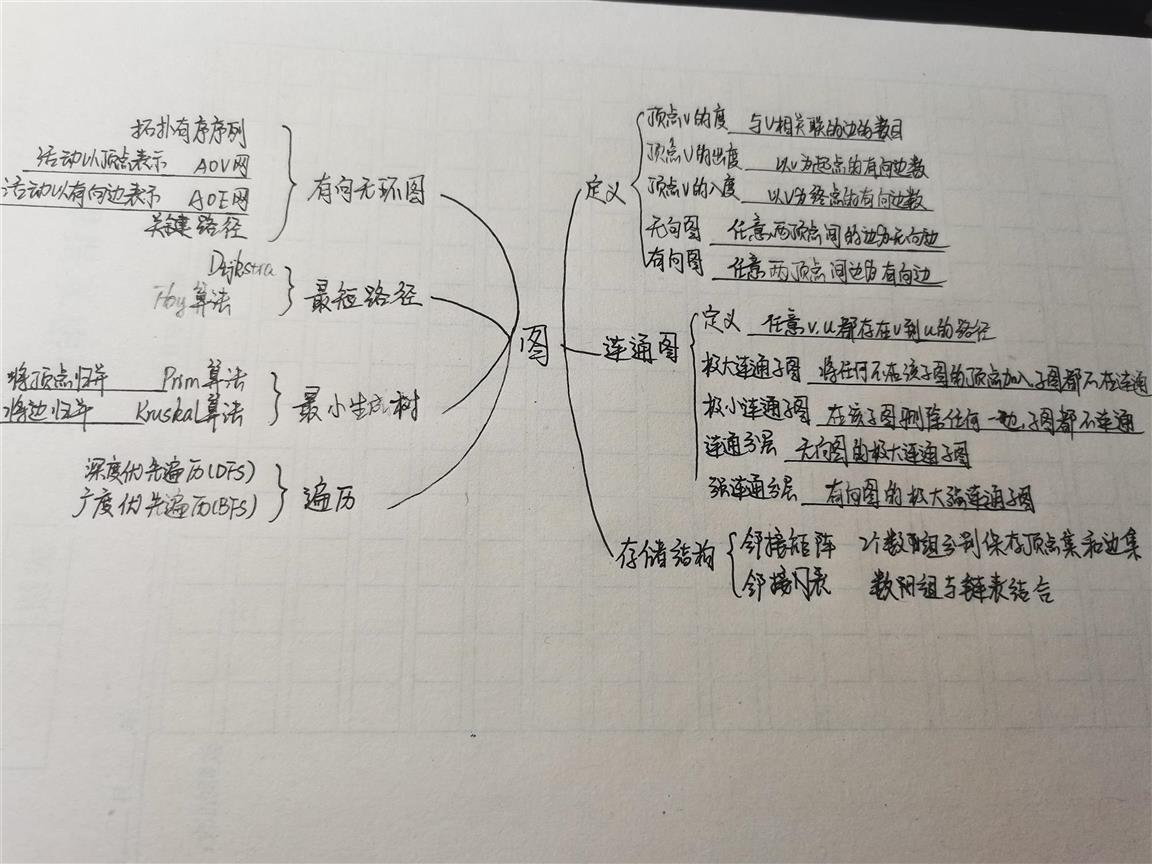 图
有向无环图
拓扑有序序列
活动以顶点表示 AOV网
活动以有向边表示 AOE网
关键路径
最短路径
Dijkstra
算法
最小生成树
将顶点归并 Prim算法
将边归并 Kruskal算法
遍历
深度优先遍历(DFS)
广度优先遍历(BFS)
定义
顶点V的度 与V相关联的边的数目
顶点V的出度 以V为起点的有向边数
顶点V的入度 以V为终点的有向边数
无向图 任意两顶点间的边为无向边
有向图 任意两顶点间边为有向边
连通图
定义 任意V.u都存在V到u的路径
极大连通子图 将任何不在该子图的顶点加入,子图都不在连通
极小连通子图 在该子图删除任何一边,子图都不连通
连通分层 无向图的极大连通子图
强连通分层 有向图的极大强连通子图
存储结构
邻接矩阵 2个数组分别保存顶点集和边集
邻接表 数组与链表结合